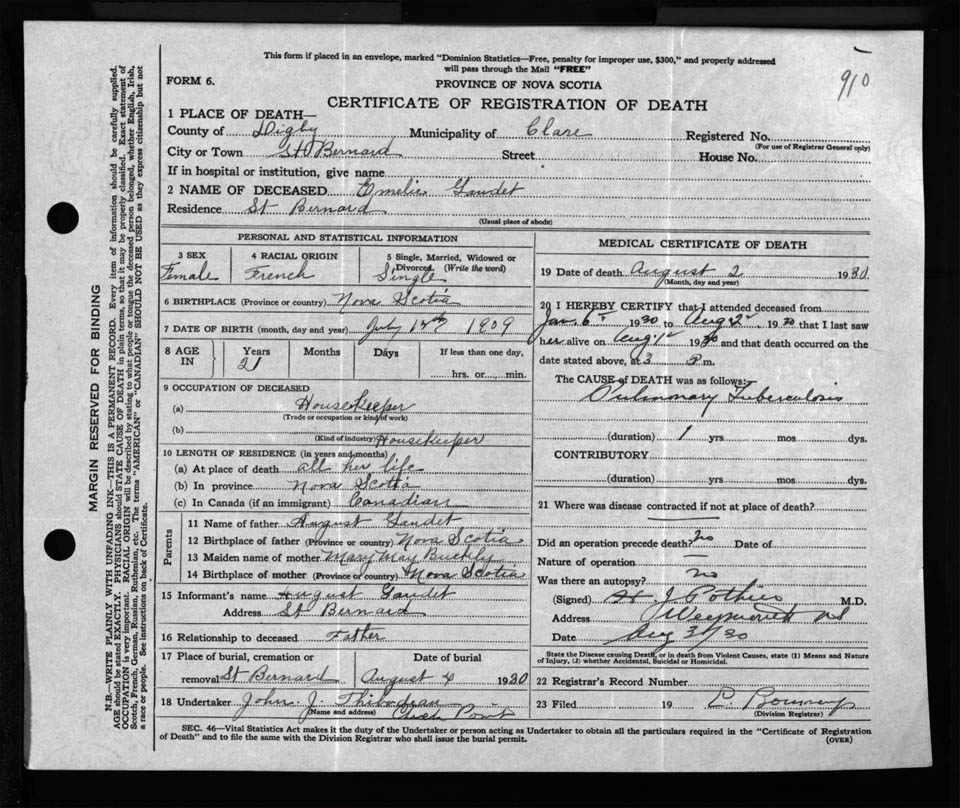 This form if placed in an envelope, marked "Dominion Statistics—Free, penalty for improper use, $300," and properly addressed
will pass through the Mail "FREE"
910
FORM 6.
PROVINCE OF NOVA SCOTIA
CERTIFICATE OF REGISTRATION OF DEATH
1 PLACE OF DEATH—
County of Digby Municipality of Clare Registered No.
(For use of Registrar General only)
City or Town St Bernard Street House No.
If in hospital or institution, give name
2 NAME OF DECEASED Emelie Gaudet
Residence St Bernard
(Usual place of abode)
PERSONAL AND STATISTICAL INFORMATION
3 SEX 4 RACIAL ORIGIN 5 Single, Married, Widowed or
Divorced. (Write the word)
Female French Single
6 BIRTHPLACE (Province or country) Nova Scotia
7 DATE OF BIRTH (month, day and year) July 1909
8 AGE IN Years Months Days If less than one day,
21
hrs. or min.
9 OCCUPATION OF DECEASED
(a) HouseKeeper
(Trade or occupation or kind of work)
(b) HouseKeeper
(Kind of industry)
10 LENGTH OF RESIDENCE (in years and months)
(a) At place of death all her life
(b) In province Nova Scotia
(c) In Canada (if an immigrant) Canadian
Parents
11 Name of father August Gaudet
12 Birthplace of father (Province or country) Nova Scotia
13 Maiden name of mother Mary May Buckly
14 Birthplace of mother (Province or country) Nova Scotia
15 Informant's name August Gaudet
Address St Bernard
16 Relationship to deceased Father
17 Place of burial, cremation or Date of burial
removal St Bernard August 4 1930
18 Undertaker John J. Thibodeau
(Name and address)
MEDICAL CERTIFICATE OF DEATH
19 Date of death August 2 1930
(Month, day and year)
20 I HEREBY CERTIFY that I attended deceased from
Jan. 6 1930 to Aug 2 1930 that I last saw
her alive on Aug 1 1930 and that death occurred on the
date stated above, at 3 P m.
The CAUSE of DEATH was as follows:
Pulmonary Tuberculosis
(duration) 1 yrs. mos. dys.
CONTRIBUTORY
(duration) yrs. mos. dys.
21 Where was disease contracted if not at place of death?
Did an operation precede death? no Date of
Nature of operation —
Was there an autopsy? no
(Signed) H J Pothier M.D.
Address Weymouth NS
Date Aug 30
State the Disease causing Death, or in death from Violent Causes, state (1) Means and Nature
of Injury, (2) whether Accidental, Suicidal or Homicidal.
22 Registrar's Record Number
23 Filed 19
(Division Registrar)
SEC. 46—Vital Statistics Act makes it the duty of the Undertaker or person acting as Undertaker to obtain all the particulars required in the "Certificate of Registration
of Death" and to file the same with the Division Registrar who shall issue the burial permit. (OVER)
MARGIN RESERVED FOR BINDING
N.B.—WRITE PLAINLY WITH UNFADING INK—THIS IS A PERMANENT RECORD. Every item of information should be carefully supplied.
AGE should be stated EXACTLY. PHYSICIANS should STATE CAUSE OF DEATH in plain terms, so that it may be properly classified. Exact statement of
OCCUPATION is very important. RACIAL ORIGIN will be described by stating to what people or tongue the deceased person belonged, whether English, Irish,
Scotch, French, German, Russian, Ruthenian, etc. The terms "AMERICAN" or "CANADIAN" SHOULD NOT BE USED as they express citizenship but not
a race or people. See instructions on back of Certificate.